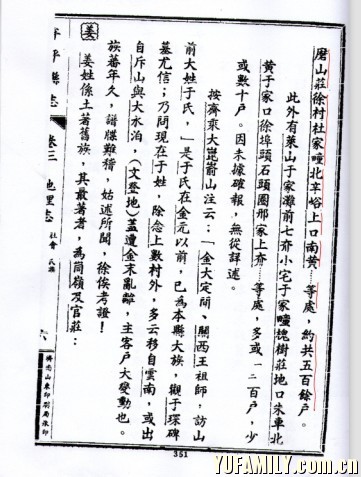 磨山莊徐村杜家疃北辛峪上口南黃……等處，約共五百餘戶。
此外有萊山于家灘前七夼小宅于家疃槐樹莊地口朱車北
黃于家口徐埠頭石頭圈邢家上夼……等處，多或一二百戶，少
或數十戶。因未據確報，無從詳述。
按齊乘大崑嵛山注云：「金大定間、關西王祖師，訪山
前大姓于氏，」是于氏在金元以前，已為本縣大族，觀于琛碑
墓尤信；乃問現在于姓，除念上數村外，多云移自雲南，或出
自斥山與大水泊，(文登地)蓋遭金末亂離，主客戶大變動也。
族蕃年久，譜牒難稽，姑述所聞，徐俟考證！
姜
姜姓係土著舊族，其最著者，為同嶺及官莊：
牟平縣志
卷三 地理志
社會 氏族
六
351
YUFAMILY.com.cn